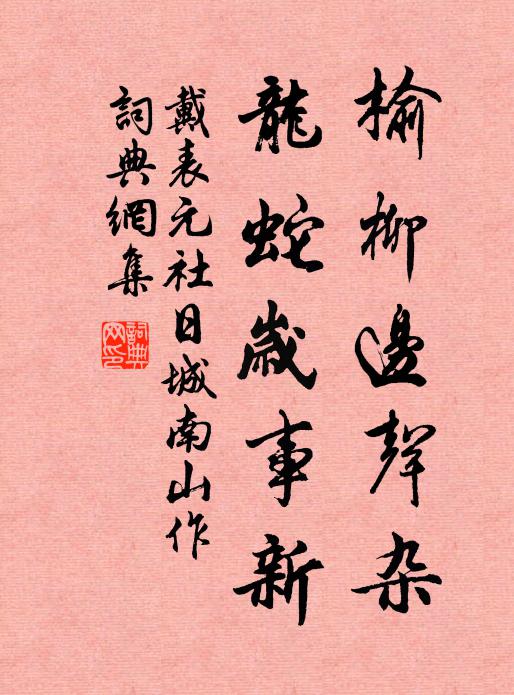 榆柳邊聲杂
龍蛇歲事新
戴表元社日城南山作
詞典網集
詞典网印